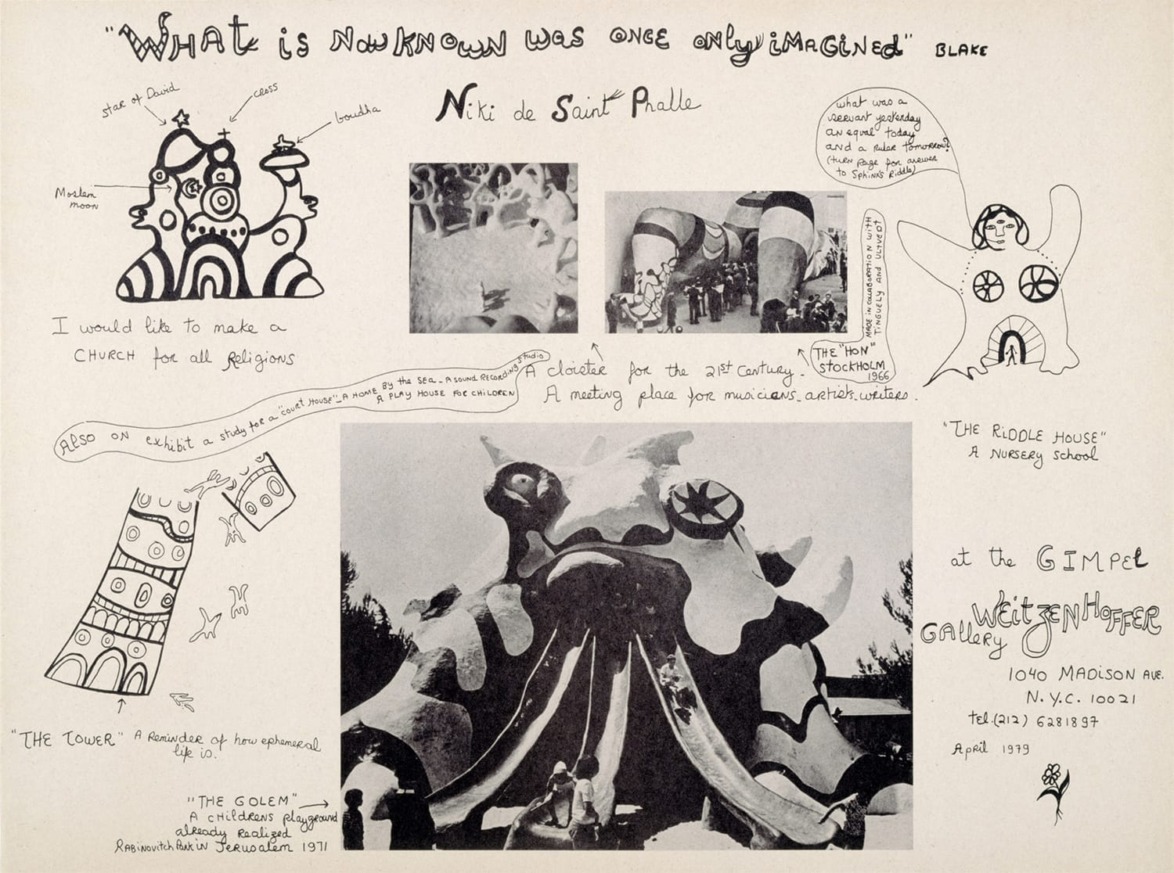 "WHAt is NowKNOWN was ONCE ONly iMAGiNED" BLAKE
Niki de Saint Phalle
star of David
cross
boudha
Moslem
moon
I would like to make a
CHURCH for all Religions
what was a
servant yesterday
an equal today
and a ruler tomorrow?
(turn page for answer
to Sphinx's Riddle)
MADE IN COLLABORATION WITH
TINGUELY AND ULTVEDT
THE "HON"
STOCKHOLM
1966
A cloister for the 21st Century.
A meeting place for musicians, artists, writers.
ALSO ON exhibit a study for a "court House"_ A HOME BY the SEA_ A SOUND RECORDING studio
A PLAY HOUSE FOR CHILDREN
"THE RiDDLE HOUSE"
A NURSERY School
"THE TOWER" A Reminder of how ephemeral
life is.
"THE GOLEM"
A CHILDRENS playground
already Realized
RABiNovitch Park in Jerusalem 1971
at the GIMPEL
WEiTZENHOFFER
GAllERy
1040 MADiSON AVE.
N.Y.C. 10021
tel.(212) 6281897
April 1979